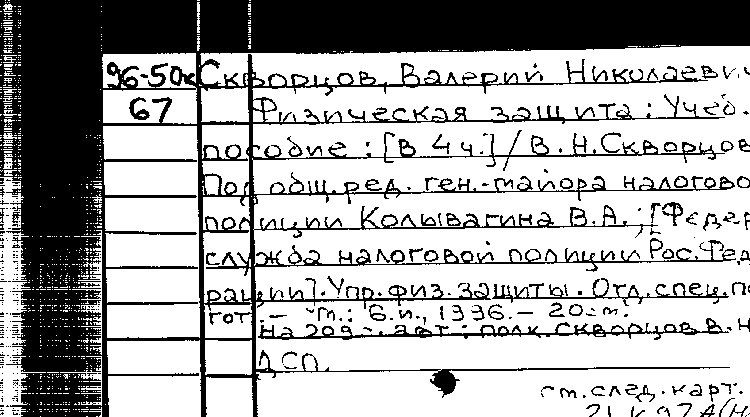 96-50к Скворцов, Валерий Николаеви
67 Физическая защита : Учеб.
пособие : [В 4 ч.] / В.Н.Скворцов
Под общ. ред. ген.-майора налогово
полиции Колывагина В.А.; [Федер
служба налоговой полиции Рос. Фед
рации]. Упр. физ. защиты. Отд. спец. по
гот. – М.: Б.и., 1996. – 20 см.
На 209 авт.: полк. Скворцов В.Н
ДСП.
см. след. карт.